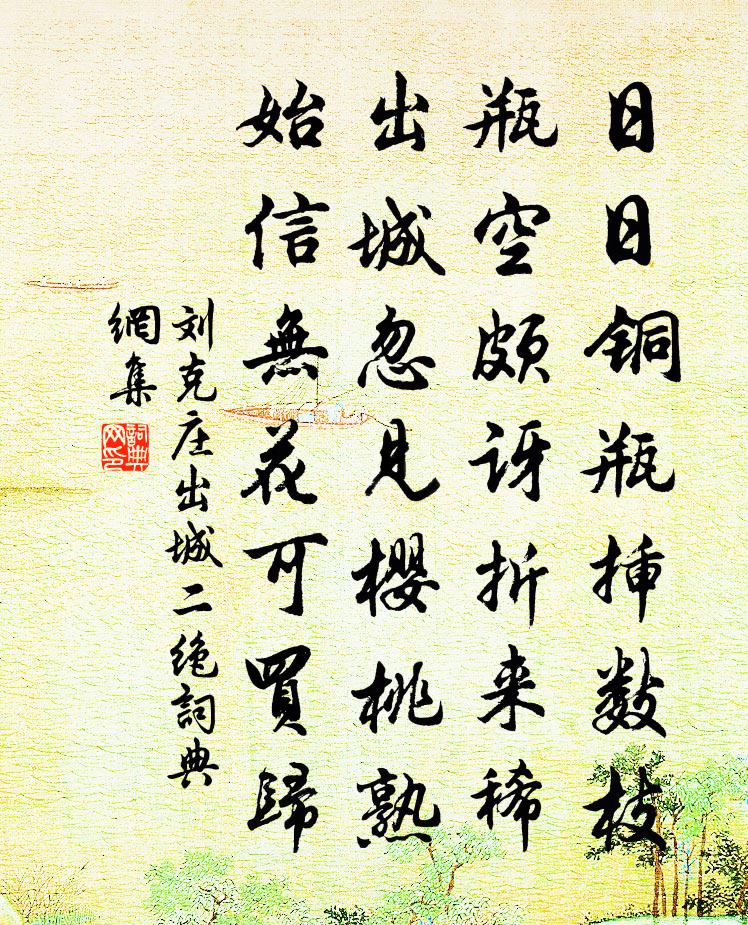 日日铜瓶插数枝
瓶空颇讶折来稀
出城忽见樱桃熟
始信無花可買歸
刘克庄出城二绝詞典
網集
詞典
网印